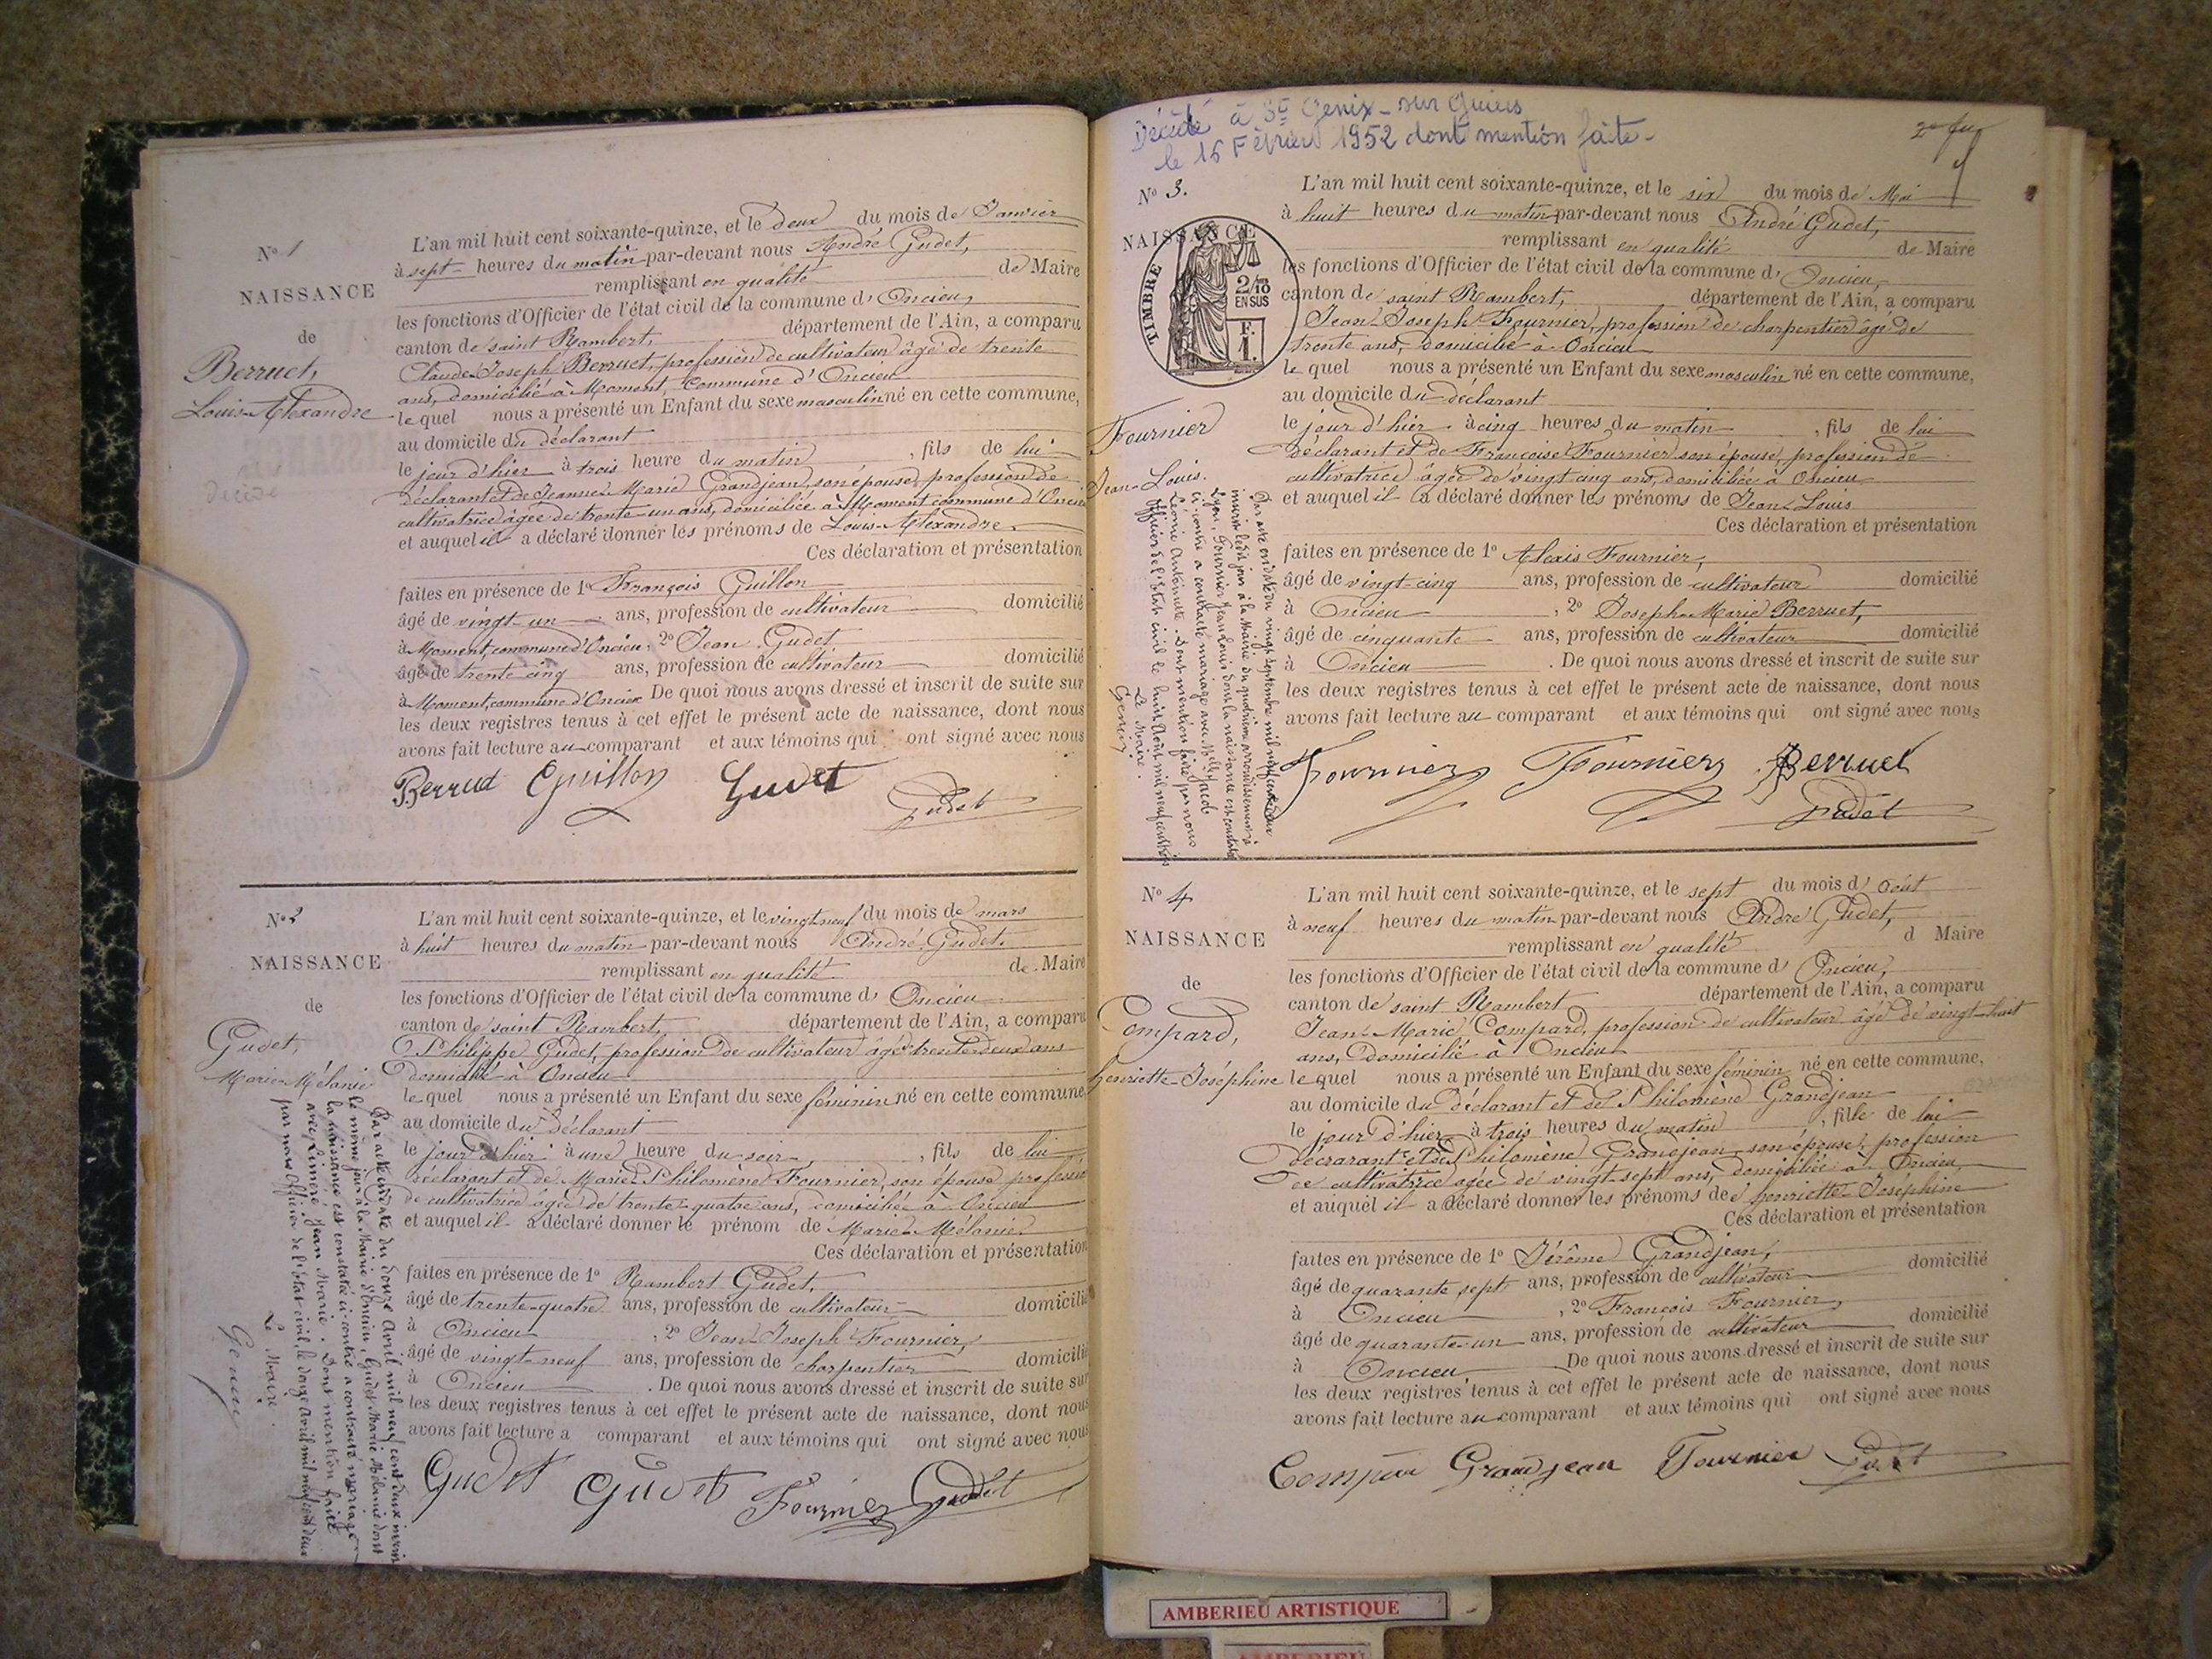 N° 1
NAISSANCE
de
Berruet,
Louis-Alexandre
Décédé
L'an mil huit cent soixante-quinze, et le deux du mois de Janvier
à sept heures du matin par-devant nous André Gudet,
remplissant en qualité de Maire
les fonctions d'Officier de l'état civil de la commune d'Oncieu,
canton de saint Rambert, département de l'Ain, a comparu
Claude-Joseph Berruet, profession de cultivateur âgé de trente
ans, domicilié à Moment, commune d'Oncieu
le quel nous a présenté un Enfant du sexe masculin né en cette commune,
au domicile du déclarant
le jour d'hier à trois heure du matin, fils de lui
déclarant et de Jeanne-Marie Grandjean, son épouse, profession de
cultivatrice âgée de trente-un ans, domiciliée à Moment commune d'Oncieu
et auquel il a déclaré donner les prénoms de Louis-Alexandre
Ces déclaration et présentation
faites en présence de 1° François Guillon
âgé de vingt-un ans, profession de cultivateur domicilié
à Moment, commune d'Oncieu, 2° Jean Gudet
âgé de trente cinq ans, profession de cultivateur domicilié
à Moment, commune d'Oncieu De quoi nous avons dressé et inscrit de suite sur
les deux registres tenus à cet effet le présent acte de naissance, dont nous
avons fait lecture au comparant et aux témoins qui ont signé avec nous
Berruet Guillon Gudet
Gudet
N° 2
NAISSANCE
de
Gudet,
Marie-Mélanie
Par acte en date du douze Avril mil neuf cent deux inscrit
le même jour à la Mairie d'Oncieu, Gudet Marie Mélanie dont
la naissance est constatée ci-contre a contracté mariage
avec Jean Marie. Dont mention faite
par nous Officier de l'état civil, le douze Avril mil neuf cent deux
Le Maire.
L'an mil huit cent soixante-quinze, et le vingt neuf du mois de mars
à huit heures du matin par-devant nous André Gudet,
remplissant en qualité de Maire
les fonctions d'Officier de l'état civil de la commune d'Oncieu
canton de saint Rambert, département de l'Ain, a comparu
Philippe Gudet, profession de cultivateur âgé trente deux ans
domicilié à Oncieu
le quel nous a présenté un Enfant du sexe féminin né en cette commune
au domicile du déclarant
le jour d'hier à une heure du soir, fils de lui
déclarant et de Marie Philomène Fournier, son épouse profession
de cultivatrice âgée de trente-quatre ans, domiciliée à Oncieu
et auquel il a déclaré donner le prénom de Marie-Mélanie
Ces déclaration et présentation
faites en présence de 1° Rambert Gudet,
âgé de trente-quatre ans, profession de cultivateur domicilié
à Oncieu, 2° Jean-Joseph Fournier,
âgé de vingt-neuf ans, profession de charpentier domicilié
à Oncieu. De quoi nous avons dressé et inscrit de suite sur
les deux registres tenus à cet effet le présent acte de naissance, dont nous
avons fait lecture a comparant et aux témoins qui ont signé avec nous
Gudet Gudet Fournier Gudet
Décédé à St Genix-sur Guiers
le 15 Février 1952 dont mention faite-
N° 3.
NAISSANCE
TIMBRE
2/10
EN SUS
F.
1.
Fournier
Jean-Louis.
Par acte en date du vingt septembre mil neuf cent deux
inscrit ledit jour à la Mairie du quatrième arrondissement de
Lyon, Fournier Jean Louis dont la naissance est constatée
ci-contre a contracté mariage avec Melle Jacob
Léonie Antoinette. Dont mention faite par nous
Officier de l'Etat civil le huit Août mil neuf cent trois
Le Maire.
L'an mil huit cent soixante-quinze, et le six du mois de Mai
à huit heures du matin par-devant nous André Gudet,
remplissant en qualité de Maire
les fonctions d'Officier de l'état civil de la commune d'Oncieu,
canton de saint Rambert, département de l'Ain, a comparu
Jean-Joseph Fournier, profession de charpentier âgé de
trente ans, domicilié à Oncieu
le quel nous a présenté un Enfant du sexe masculin né en cette commune,
au domicile du déclarant
le jour d'hier à cinq heures du matin, fils de lui
déclarant et de Françoise Fournier son épouse, profession de
cultivatrice âgée de vingt cinq ans, domiciliée à Oncieu
et auquel il a déclaré donner les prénoms de Jean-Louis
Ces déclaration et présentation
faites en présence de 1° Alexis Fournier,
âgé de vingt-cinq ans, profession de cultivateur domicilié
à Oncieu, 2° Joseph-Marie Berruet,
âgé de cinquante ans, profession de cultivateur domicilié
à Oncieu. De quoi nous avons dressé et inscrit de suite sur
les deux registres tenus à cet effet le présent acte de naissance, dont nous
avons fait lecture au comparant et aux témoins qui ont signé avec nous
Fournier Fournier Berruet
Gudet
N° 4
NAISSANCE
de
Compard,
henriette-Joséphine
L'an mil huit cent soixante-quinze, et le sept du mois d'août
à neuf heures du matin par-devant nous André Gudet,
remplissant en qualité d Maire
les fonctions d'Officier de l'état civil de la commune d'Oncieu,
canton de saint Rambert département de l'Ain, a comparu
Jean-Marie Compard, profession de cultivateur âgé de vingt-huit
ans, domicilié à Oncieu
le quel nous a présenté un Enfant du sexe féminin né en cette commune,
au domicile du déclarant et de Philomène Grandjean
le jour d'hier, à trois heures du matin, fille de lui
décrarant et de Philomène Grandjean son épouse, profession
de cultivatrice agée de vingt-sept ans, domiciliée à Oncieu
et auquel il a déclaré donner les prénoms de henriette-Josephine
Ces déclaration et présentation
faites en présence de 1° Jérôme Grandjean, domicilié
âgé de quarante sept ans, profession de cultivateur
à Oncieu, 2° François Fournier,
âgé de quarante-un ans, profession de cultivateur domicilié
à Oncieu De quoi nous avons dressé et inscrit de suite sur
les deux registres tenus à cet effet le présent acte de naissance, dont nous
avons fait lecture au comparant et aux témoins qui ont signé avec nous
Grandjean Fournier Gudet
AMBERIEU ARTISTIQUE
AMBERIEU